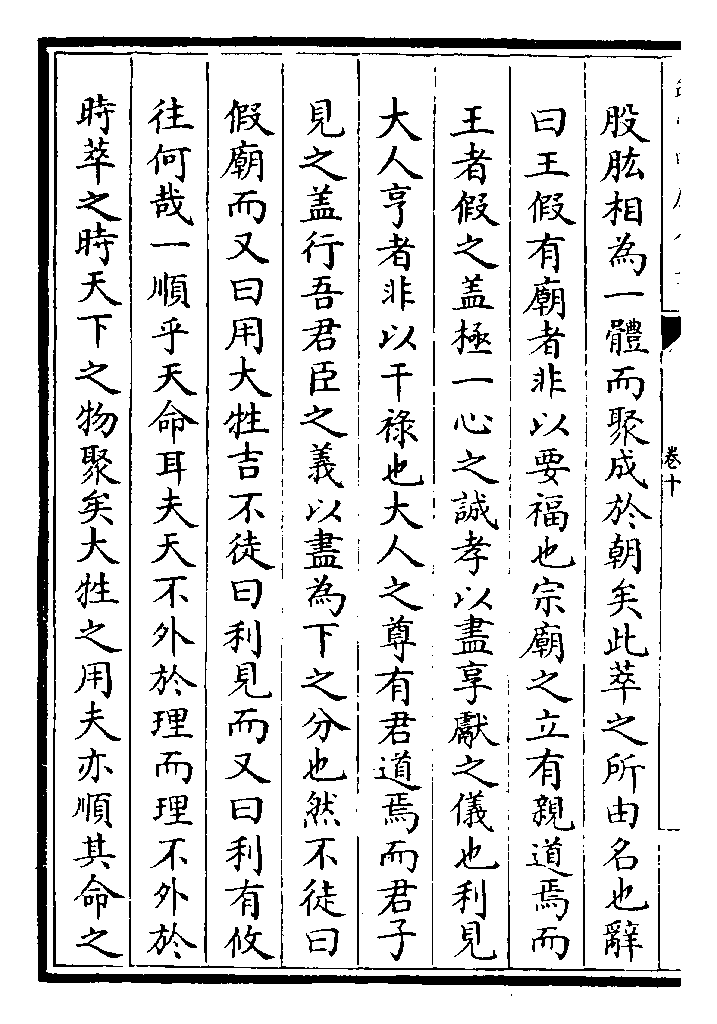 股肱相為一體而聚成於朝矣此萃之所由名也辭
曰王假有廟者非以要福也宗廟之立有親道焉而
王者假之盖極一心之誠孝以盡享獻之儀也利見
大人亨者非以干祿也大人之尊有君道焉而君子
見之盖行吾君臣之義以盡為下之分也然不徒曰
假廟而又曰用大牲吉不徒曰利見而又曰利有攸
往何哉一順乎天命耳夫天不外於理而理不外於
時萃之時天下之物聚矣大牲之用夫亦順其命之
卷十